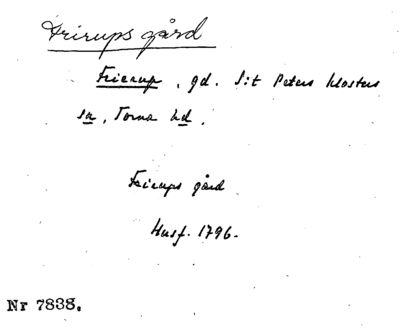 Trirups gård
Trierup, gd. S:t Peters klosters
sn, Torna hd.
Trierups gård
Husf. 1796.
Nr 7838.